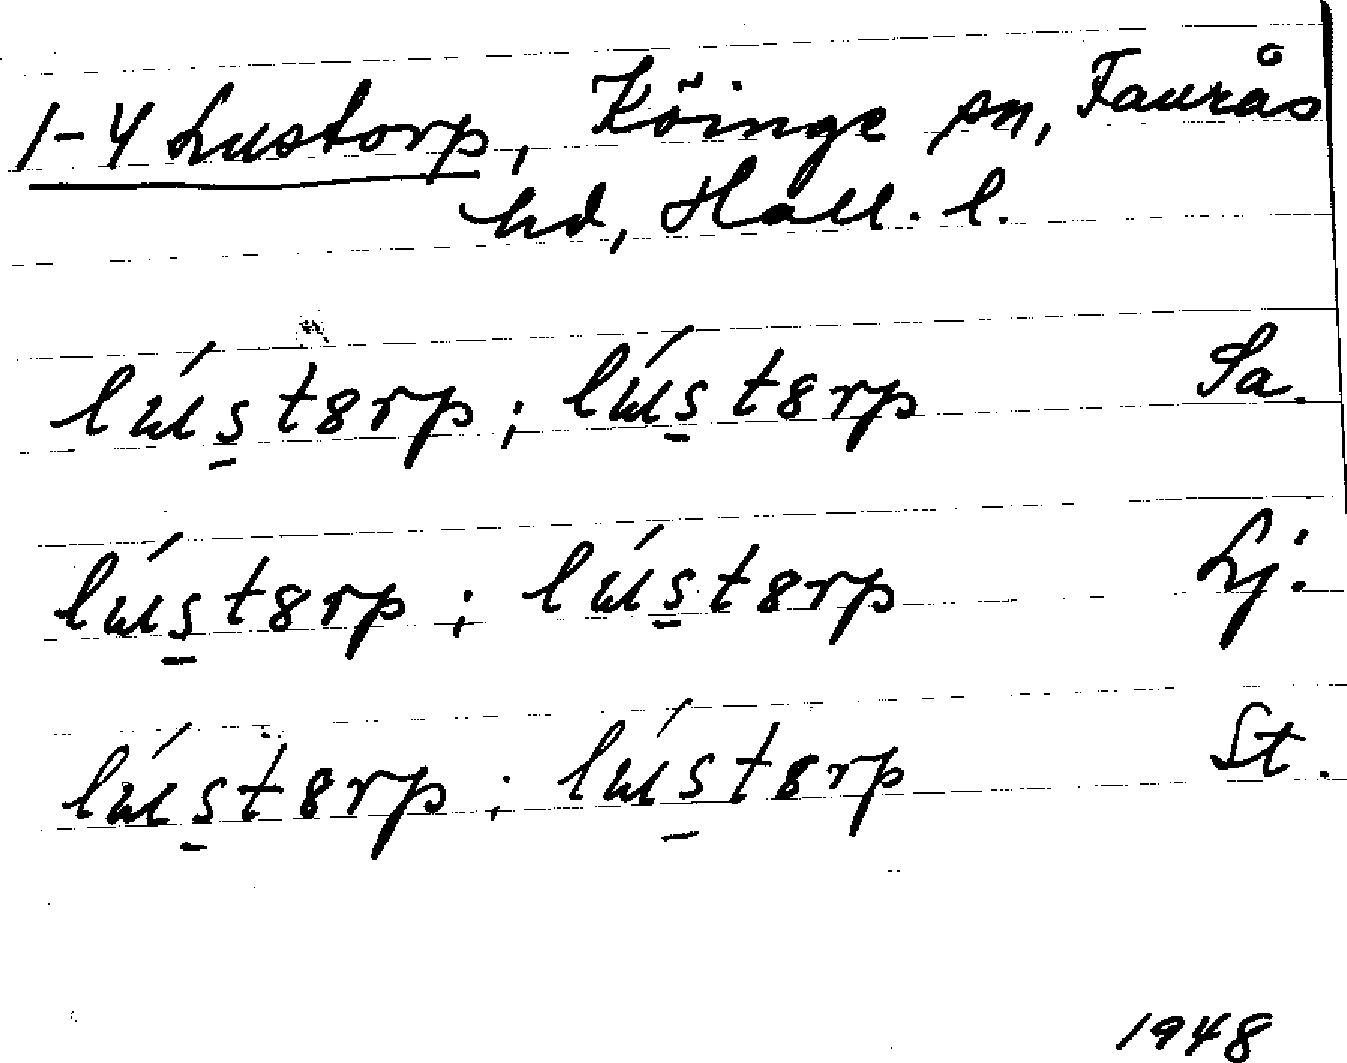 1-4 Lustorp, Köinge sn, Faurås
hd, Hall. l.
lús̱t8rp; lús̱t8rp Sa.
lús̱t8rp; lús̱t8rp Lj.
lús̱t8rp; lús̱t8rp St.
1948